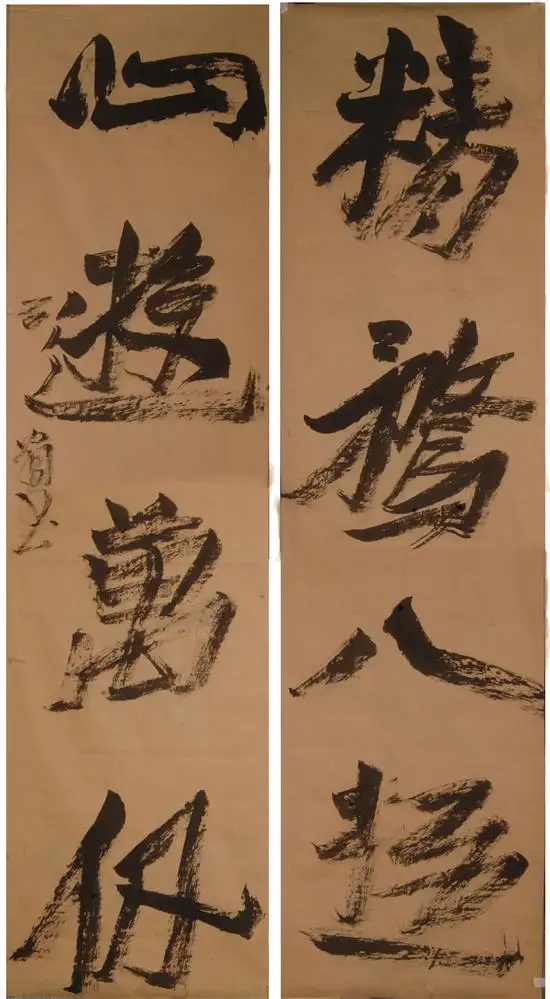 精騖八極
心遊萬仞